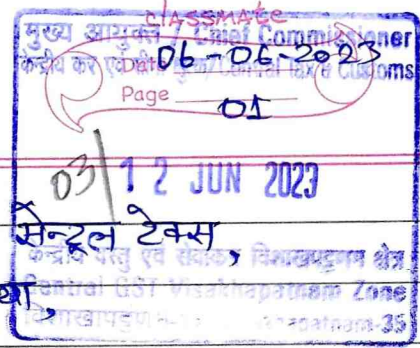 classmate
मुख्य आयुक्त / Chief Commissioner
06-06-2023
केन्द्रीय कर Central Tax & Customs
Page 01
03 12 JUN 2023
सेन्ट्रल टेक्स,
विशाखापट्टणम क्षेत्र
Central GST Visakhapatnam Zone
-35